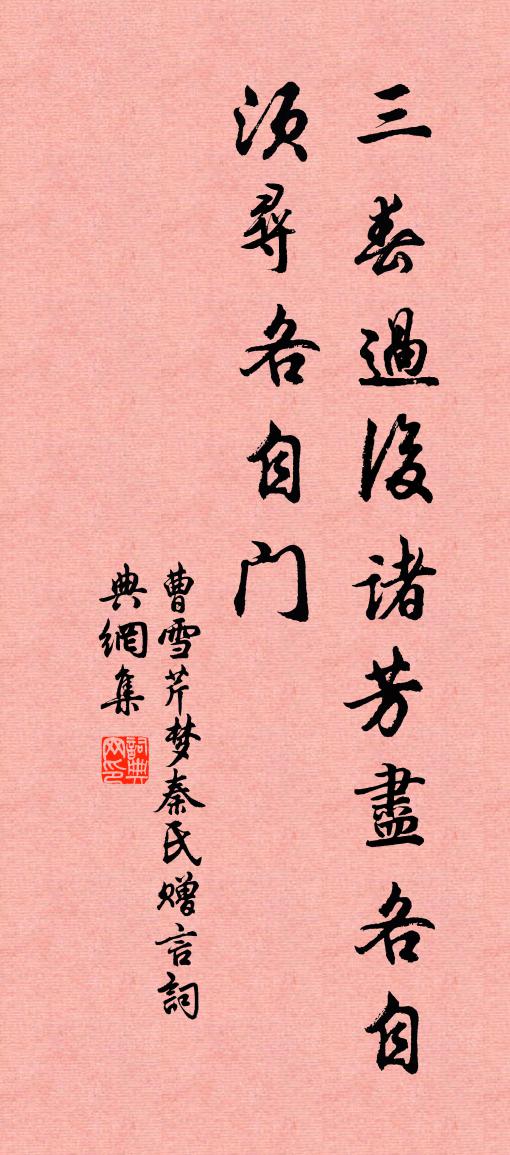 三春過後諸芳盡各自
須尋各自门
曹雪芹梦秦氏赠言詞
典網集
詞典网印